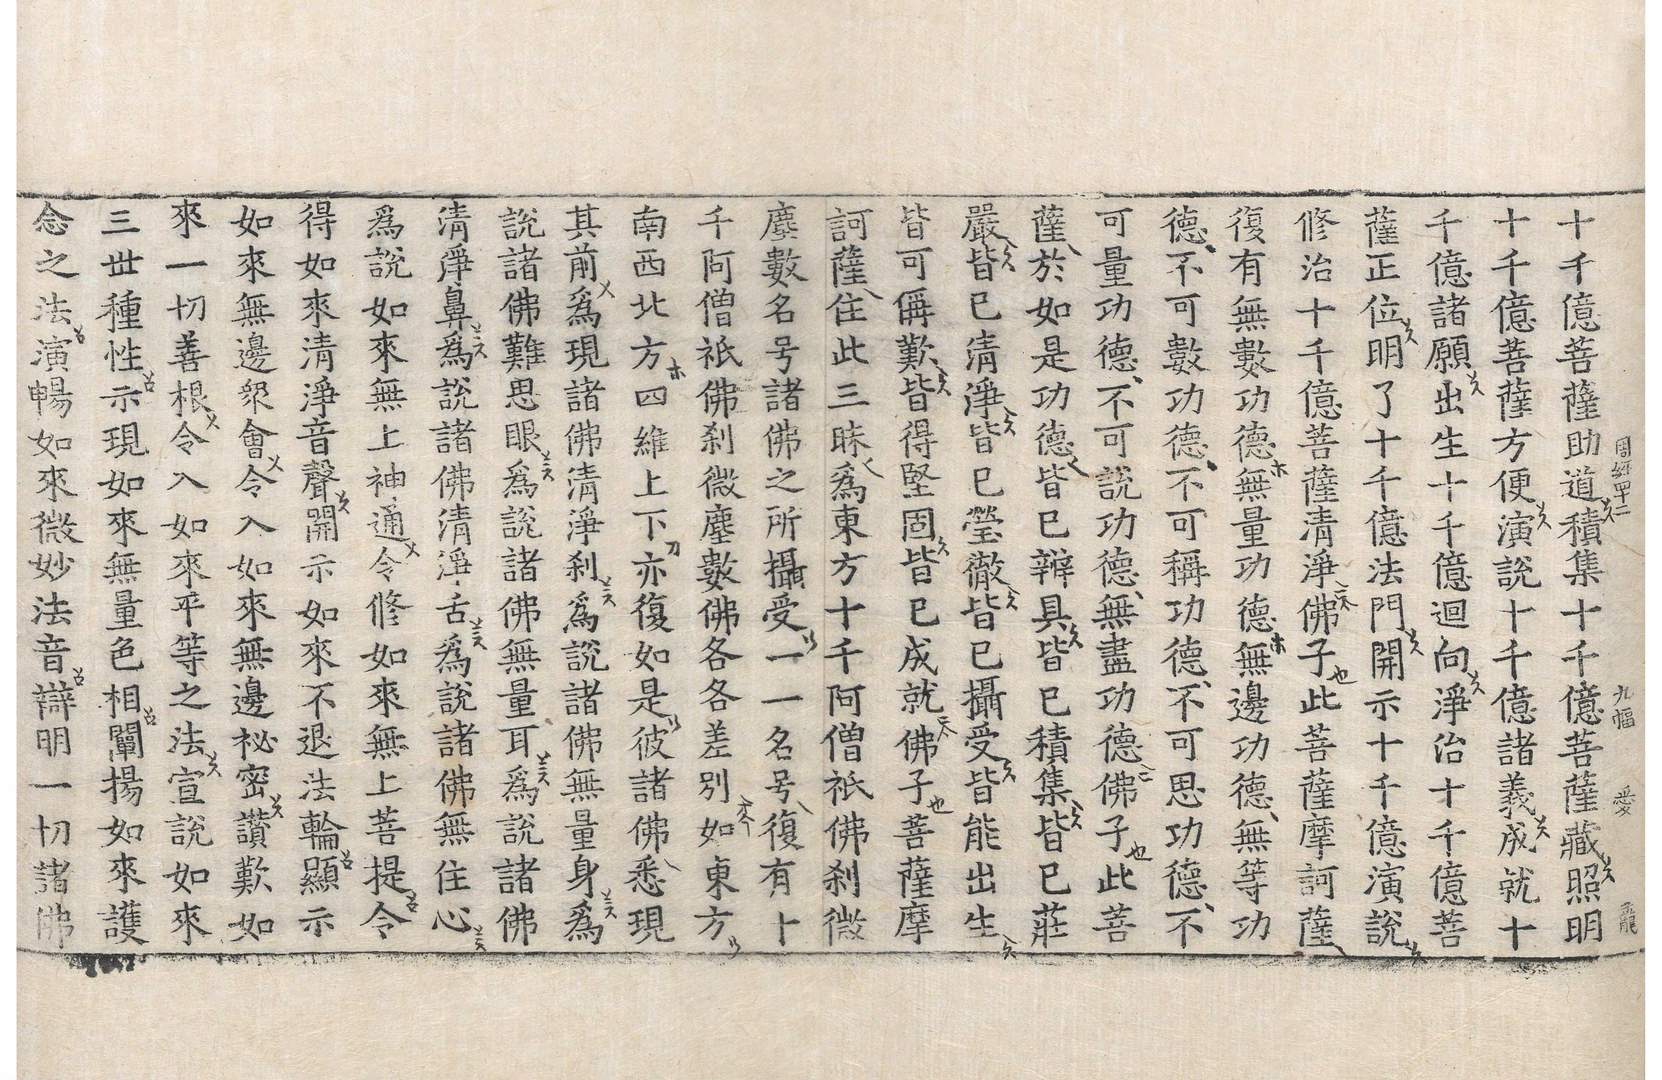 十千億菩薩助道積集十千億菩薩藏照明
十千億菩薩方便演說十千億諸義成就十
千億諸願出生十千億迴向淨治十千億菩
薩正位明了十千億法門開示十千億演說
修治十千億菩薩清淨佛子此菩薩摩訶薩
復有無數功德無量功德無邊功德無等功
德不可數功德不可稱功德不可思功德不
可量功德不可說功德無盡功德佛子此菩
薩於如是功德皆已辦具皆已積集皆已莊
嚴皆已清淨皆已瑩徹皆已攝受皆能出生
皆可稱歎皆得堅固皆已成就佛子菩薩摩
訶薩住此三昧爲東方十千阿僧祇佛刹微
塵數名号諸佛之所攝受一一名号復有十
千阿僧祇佛刹微塵數佛各各差別如東方
南西北方四維上下亦復如是彼諸佛悉現
其前爲現諸佛清淨刹爲說諸佛無量身爲
說諸佛難思眼爲說諸佛無量耳爲說諸佛
清淨鼻爲說諸佛清淨舌爲說諸佛無住心
爲說如來無上神通令修如來無上菩提令
得如來清淨音聲開示如來不退法輪顯示
如來無邊衆會令入如來無邊祕密讚歎如
來一切善根令入如來平等之法宣說如來
三世種性示現如來無量色相闡揚如來護
念之法演暢如來微妙法音辯明一切諸佛
周經四十二 九幅 愛